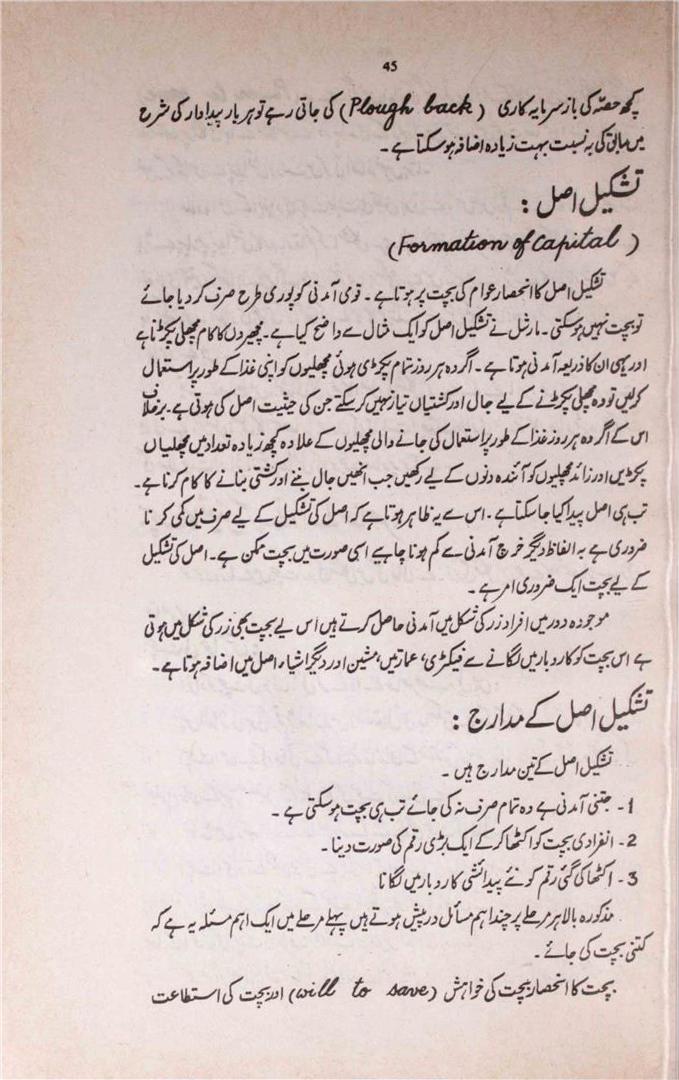 45
کچھ حصّہ کی باز سرمایہ کاری (Plough back) کی جاتی رہے تو ہر بار پیداوار کی شرح
میں سابق کی بہ نسبت بہت زیادہ اضافہ ہو سکتا ہے ۔
تشکیل اصل :
(Formation of Capital)
تشکیل اصل کا انحصار عوام کی بچت پر ہوتا ہے ۔ قومی آمدنی کو پوری طرح صرف کر دیا جائے
تو بچت نہیں ہو سکتی ۔ مارشل نے تشکیل اصل کو ایک مثال سے واضح کیا ہے ۔ مچھیروں کا کام مچھلی پکڑنا ہے
اور یہی ان کا ذریعہ آمدنی ہوتا ہے ۔ اگر وہ ہر روز تمام پکڑی ہوئی مچھلیوں کو اپنی غذا کے طور پر استعمال
کر لیں تو وہ مچھلی پکڑنے کے لیے جال اور کشتیاں تیار نہیں کر سکتے جن کی حیثیت اصل کی ہوتی ہے ۔ برخلاف
اس کے اگر وہ ہر روز غذا کے طور پر استعمال کی جانے والی مچھلیوں کے علاوہ کچھ زیادہ تعداد میں مچھلیاں
پکڑیں اور زائد مچھلیوں کو آئندہ دنوں کے لیے رکھیں جب انھیں جال بننے اور کشتی بنانے کا کام کرنا ہے ۔
تب ہی اصل پیدا کیا جا سکتا ہے ۔ اس سے یہ ظاہر ہوتا ہے کہ اصل کی تشکیل کے لیے صرف میں کمی کرنا
ضروری ہے بہ الفاظ دیگر خرچ آمدنی سے کم ہونا چاہیے اسی صورت میں بچت ممکن ہے ۔ اصل کی تشکیل
کے لیے بچت ایک ضروری امر ہے ۔
موجودہ دور میں افراد زر کی شکل میں آمدنی حاصل کرتے ہیں اس لیے بچت بھی زر کی شکل میں ہوتی
ہے اس بچت کو کاروبار میں لگانے سے فیکٹری، عمارتیں، مشین اور دیگر اشیاء اصل میں اضافہ ہوتا ہے ۔
تشکیل اصل کے مدارج :
تشکیل اصل کے تین مدارج ہیں ۔
1- جتنی آمدنی ہے وہ تمام صرف نہ کی جائے تب ہی بچت ہو سکتی ہے ۔
2- انفرادی بچت کو اکٹھا کر کے ایک بڑی رقم کی صورت دینا ۔
3- اکٹھا کی گئی رقم کو نئے پیدائشی کاروبار میں لگانا
مذکورہ بالا ہر مرحلے پر چند اہم مسائل درپیش ہوتے ہیں پہلے مرحلے میں ایک اہم مسئلہ یہ ہے کہ
کتنی بچت کی جائے ۔
بچت کا انحصار بچت کی خواہش (will to save) اور بچت کی استطاعت